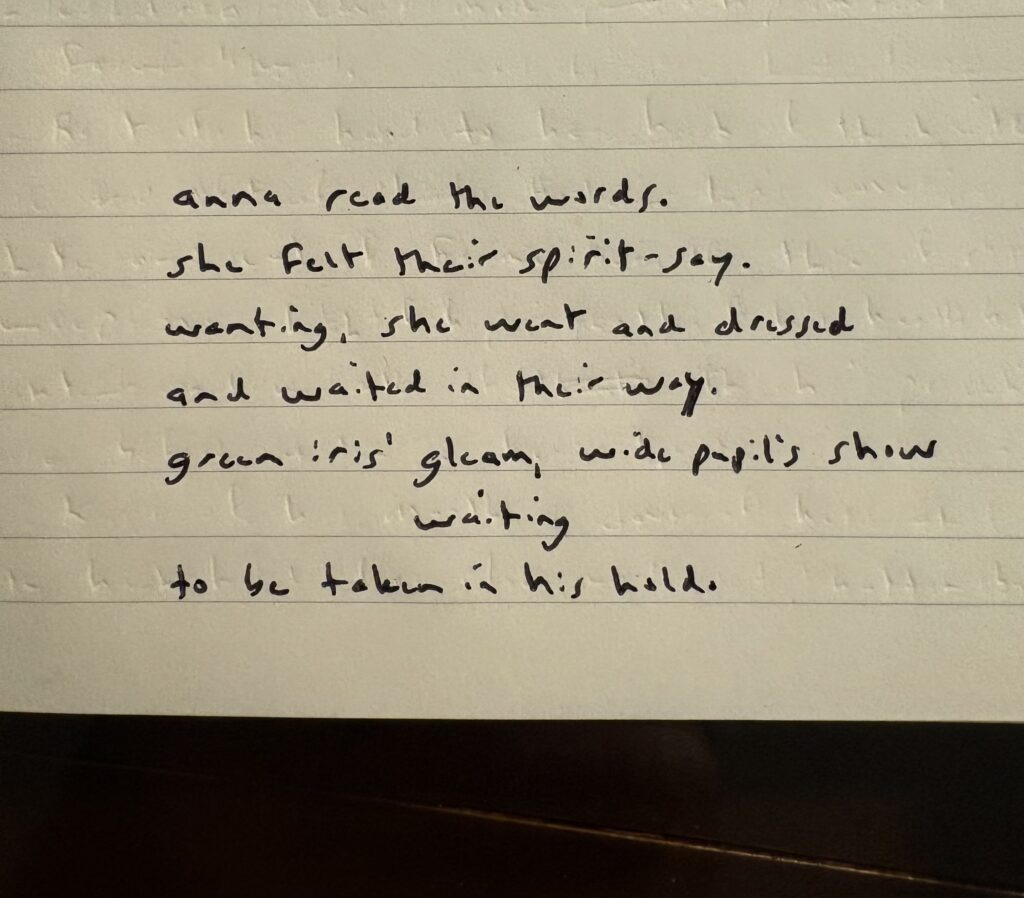 anna read the words.
she felt their spirit-say.
wanting, she went and dressed
and waited in their way.
green iris' gleam, wide pupil's show
waiting
to be taken in his hold.